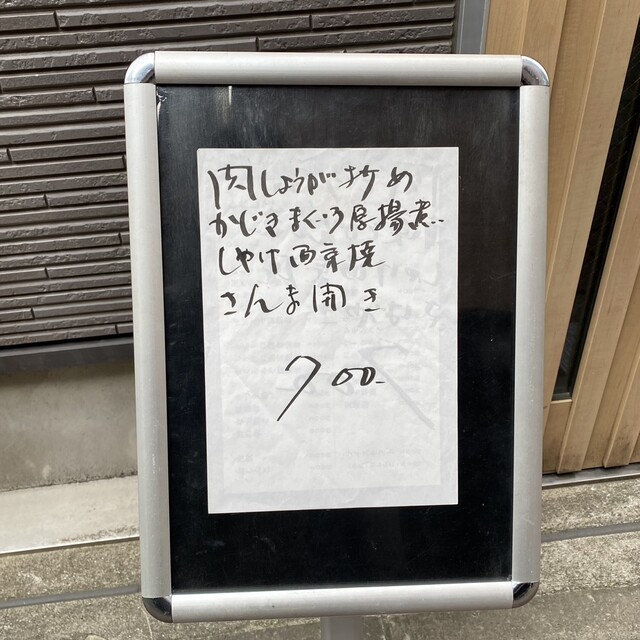 肉しょうが炒め
かじきまぐろ厚揚煮
しゃけ西京焼
さんま開き
700.